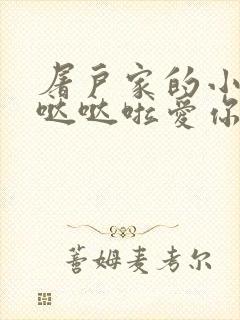 屠户家的小
哒哒啦爱你
蓍姆麦考尔